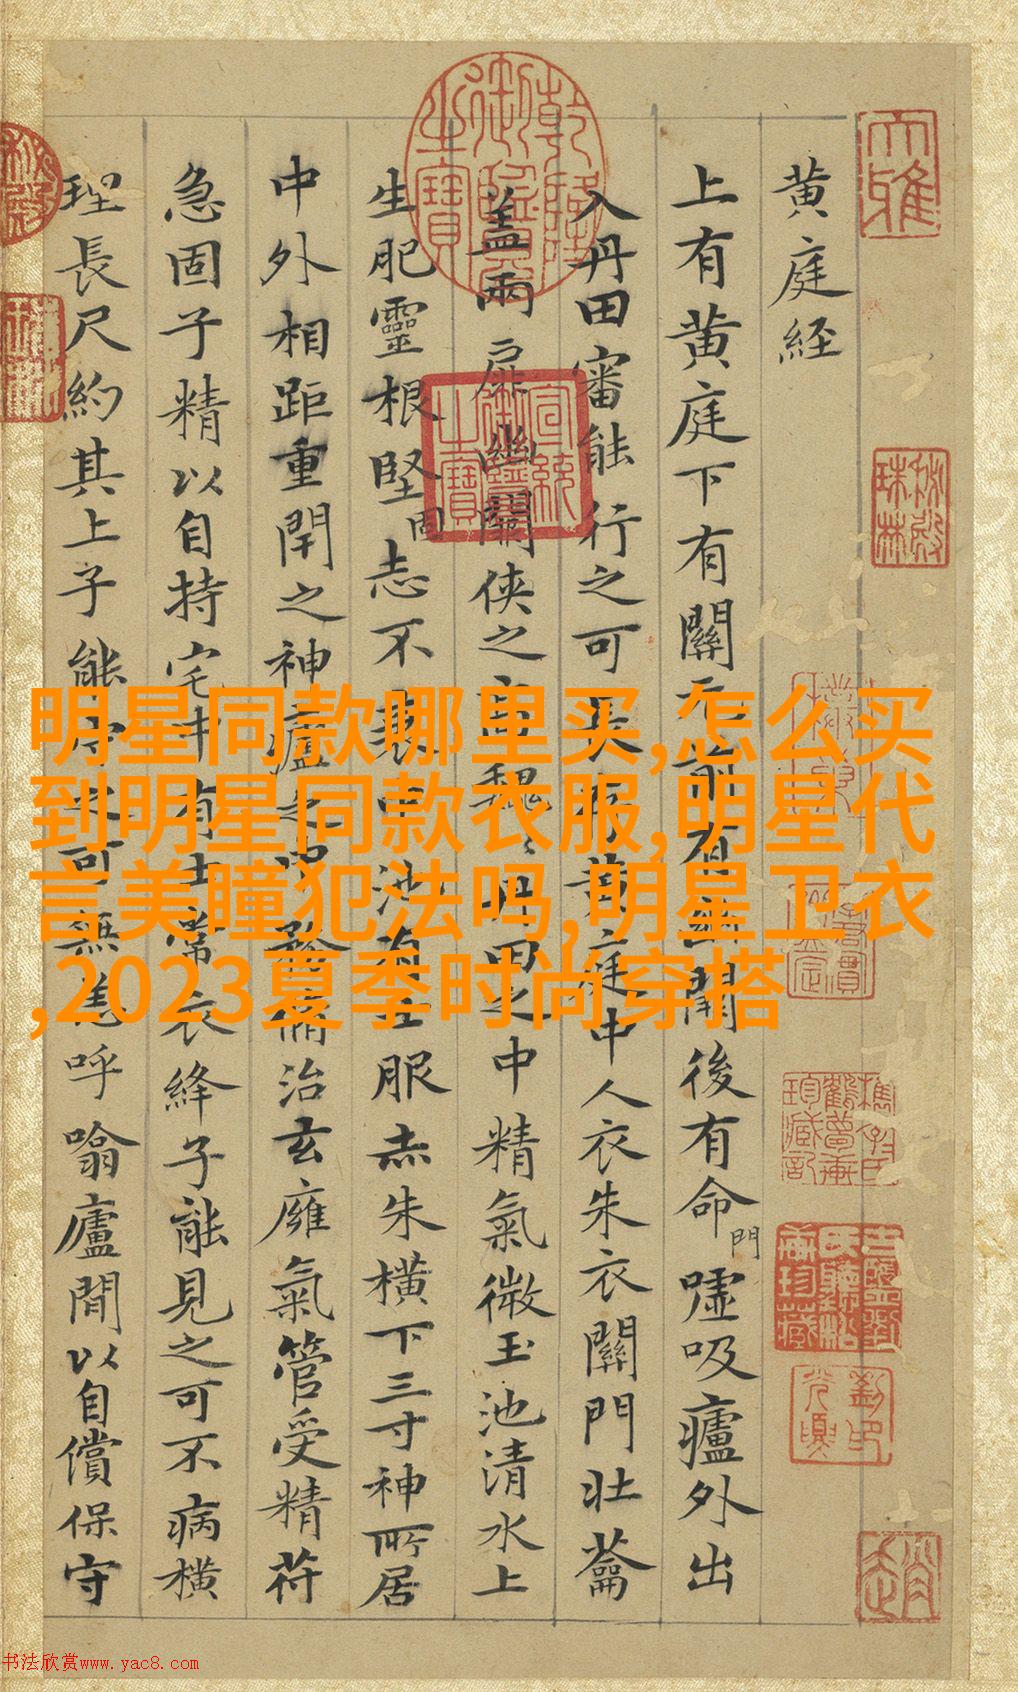 黄庭经
上有黄庭下有關元前有幽闕後有命門噓吸廬外出
入丹田審能行之可長存黄庭中人衣朱衣關門壯蘥
盖兩扉幽關侠之高魏〻丹田之中精氣微玉池清水上
生肥靈根堅固志不衰中池有士服赤朱横下三寸神所居
中外相距重閇之神廬之中務脩治玄癕氣管受精苻
急固子精以自持宅中有士常衣絳子能見之可不病横
理長尺約其上子能守之可無恙呼噏廬間以自償保守
明星同款哪里买,怎么买
到明星同款衣服,明星代
言美瞳犯法吗,明星卫衣
,2023夏季时尚穿搭
大雅
乾隆御覽之寶
宣統御覽之寶
书法欣赏www.yac8.com